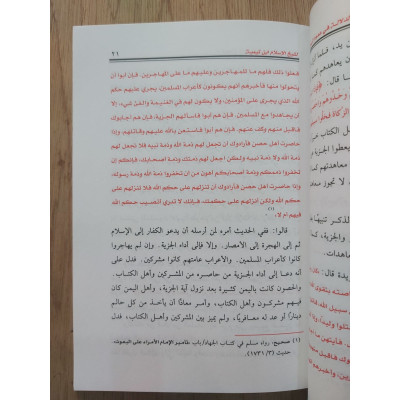 لشيخ الإسلام ابن تيمية ٢١
فعلوا ذلك فلهم ما للمهاجرين وعليهم ما على المهاجرين. فإن أبوا أن
يتحولوا منها فأخبرهم أنهم يكونون كأعراب المسلمين يجري عليهم حكم
الله الذي يجري على المؤمنين. ولا يكون لهم في الغنيمة والفيء شيء. إلا
أن يجاهدوا مع المسلمين. فإن هم أبوا فاسألهم الجزية. فإن هم أجابوك
فاقبل منهم وكف عنهم. فإن هم أبوا فاستعن بالله عليهم وقاتلهم. وإذا
حاصرت أهل حصن فأرادوك أن تجعل لهم ذمة الله وذمة نبيه فلا تجعل لهم
ذمة الله ولا ذمة نبيه. ولكن اجعل لهم ذمتك وذمة أصحابك. فإنكم إن
تخفروا ذممكم وذمة أصحابكم أهون من أن تخفروا ذمة الله وذمة رسوله.
وإذا حاصرت أهل حصن فأرادوك أن تنزلهم على حكم الله فلا تنزلهم على
حكم الله ولكن أنزلهم على حكمك. فإنك لا تدري أتصيب حكم الله
فيهم أم لا» (١)
قالوا: ففي الحديث أمره لمن أرسله أن يدعو الكفار إلى الإسلام
ثم إلى الهجرة إلى الأمصار. وإلا فإلى أداء الجزية. وإن لم يهاجروا
كانوا كأعراب المسلمين. والأعراب عامتهم كانوا مشركين. فدل على
أنه دعا إلى أداء الجزية من حاصره من المشركين وأهل الكتاب.
والحصون كانت باليمين كثيرة بعد نزول آية الجزية. وأهل اليمن كان
فيهم مشركون وأهل كتاب. وأمر معاذًا أن يأخذ من كل حالم
دينارًا أو عد له معافريًا. ولم يميز بين المشركين وأهل الكتاب. فدل
(١) صحيح: رواه مسلم في كتاب الجهاد/باب تأمير الإمام الأمراء على البعوث.
حديث (٣/ ١٧٣١).